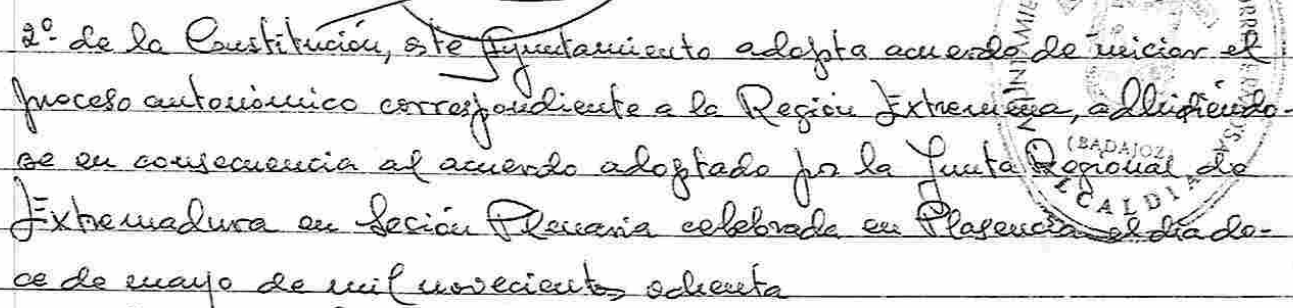 2º de la Constitución, este Ayuntamiento adopta acuerdo de iniciar el
proceso autonómico correspondiente a la Región Extremeña, adhiriéndo-
se en consecuencia al acuerdo adoptado por la Junta Regional de
Extremadura en Sesión Plenaria celebrada en Plasencia el día do-
ce de mayo de mil novecientos ochenta
(BADAJOZ)
ALCALDIA